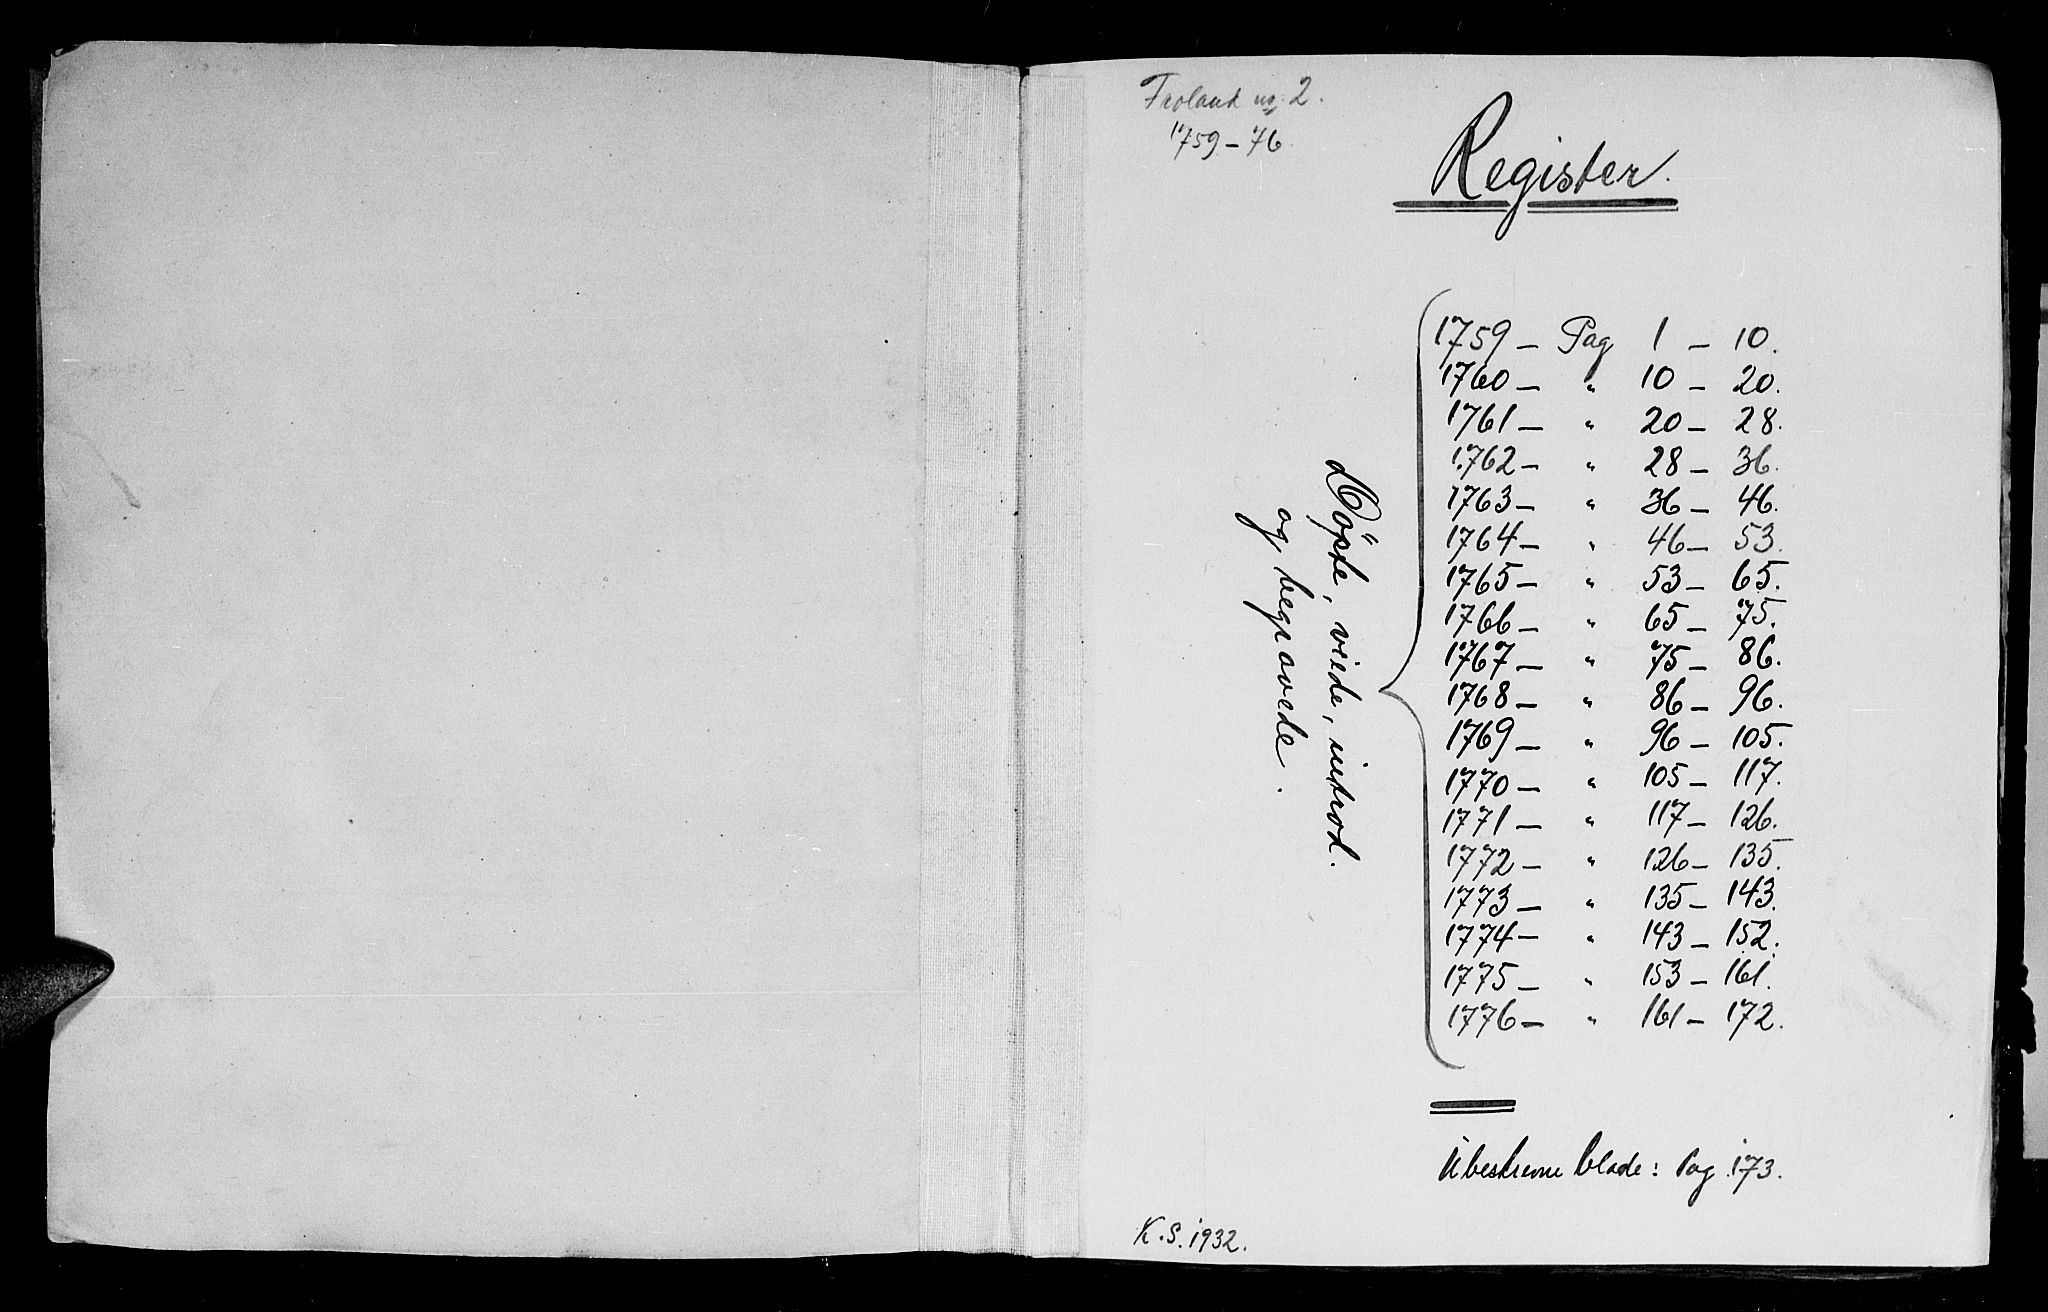 Froland nr. 2.
1759 – 76.
Register.
Döpte, viede, introd.
og begravede.
1759 – Pag 1 – 10.
1760 – " 10 – 20.
1761 – " 20 – 28.
1762 – " 28 – 36.
1763 – " 36 – 46.
1764 – " 46 – 53.
1765 – " 53 – 65.
1766 – " 65 – 75.
1767 – " 75 – 86.
1768 – " 86 – 96.
1769 – " 96 – 105.
1770 – " 105 – 117.
1771 – " 117 – 126.
1772 – " 126 – 135.
1773 – " 135 – 143.
1774 – " 143 – 152.
1775 – " 153 – 161.
1776 – " 161 – 172.
Ubeskrevne blade: Pag. 173.
K.S. 1932.